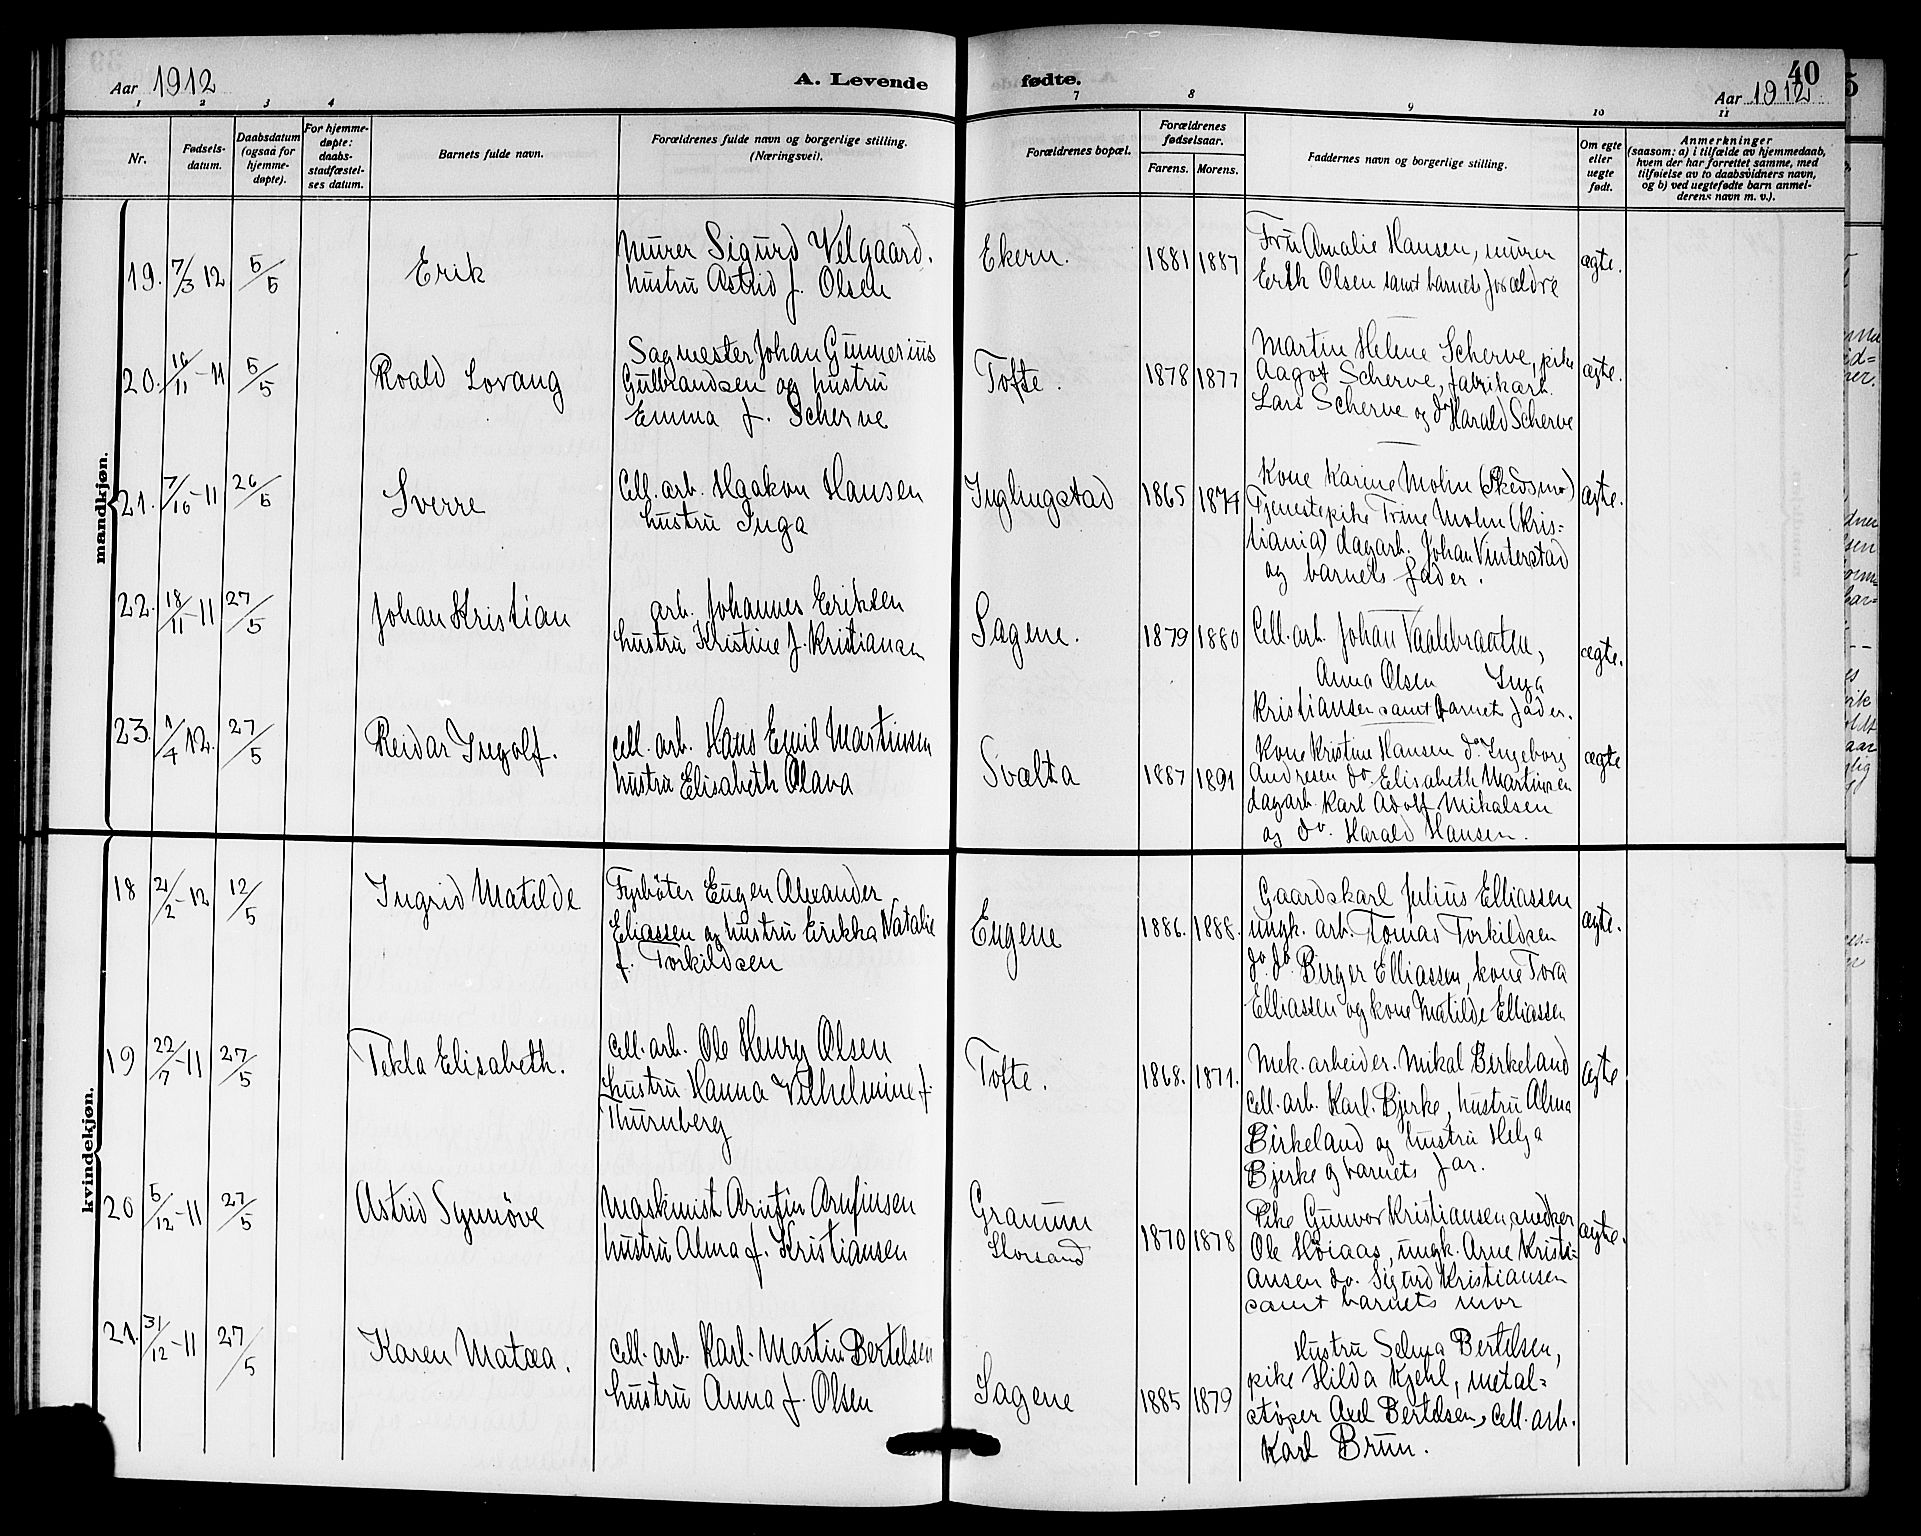 Aar 1912
A. Levende
fødte.
40
Aar 1912
1 2 3 4
7 8 9 10 11
Nr.
Fødsels-
datum.
Daabsdatum
(ogsaa for
hjemme-
døpte).
For hjemme-
døpte:
daabs-
stadfæstel-
ses datum.
Barnets fulde navn.
Forældrenes fulde navn og borgerlige stilling.
(Næringsvei).
Forældrenes bopæl.
Forældrenes
fødselsaar.
Farens. Morens.
Faddernes navn og borgerlige stilling.
Om egte
eller
uegte
født.
Anmerkninger
(saasom: a) i tilfælde av hjemmedaab,
hvem der har forrettet samme, med
tilføielse av to daabsvidners navn,
og b) ved uegtefødte barn anmel-
derens navn m. v.).
mandkjøn.
19. 7/3 12 5/5
Erik
Murer Sigurd Velgaard.
hustru Astrid f. Olsen
Ekern.
1881 1887
Fru Amalie Hansen, murer
Olsen samt barnets forældre
ægte.
20. 16/11 - 11 5/5
Roald Lovang
Sagmester Johan Gunnerius
Gulbrandsen og hustru
Emma f. Scherve
Tofte.
1878 1877
Martin Helene Scherve, pike
Aagot Scherve, fabrikarb.
Lars Scherve og do Harald Scherve
ægte.
21. 7/10 - 11 26/5
Sverre
Cell. arb. Haakon Hansen
hustru Inga
Inglingstad
1865 1874
Kone Karine Mohn
Tjenestepike Trine Mohn (Kris-
tiania) dagarb. Johan Vinterstad
og barnets fader.
ægte.
22. 18/11 - 11 27/5
Johan Kristian
arb. Johannes Eriksen
hustru Kristine f. Kristiansen
Sagene.
1879 1880
Cell. arb. Johan Vaalebraaten,
Anna Olsen Inga
Kristiansen samt barnets fader.
ægte.
23. 1/4 12. 27/5
Reidar Ingolf.
cell. arb. Hans Emil Martinsen
hustru Elisabeth Olava
Svælta
1887 1891
Kone Kristine Hansen do. Ingeborg
Andresen do. Elisabeth Martinsen
dagarb. Karl Adolf Mikalsen
og do. Harald Hansen.
ægte
kvindekjøn.
18 21/2 - 12 12/5
Ingrid Matilde
Fyrbøter Eugen Alexander
Eliassen og hustru Erikka Natalie
f. Torkildsen
Eugene
1886. 1888.
Gaardskarl Julius Elliassen
ungk. arb. Tomas Torkildsen
do. do. Birger Elliassen, kone Tora
Elliassen og kone Matilde Elliassen
ægte.
19 22/7 - 11 27/5
Tekla Elisabeth.
cell. arb. Ole Henry Olsen
hustru Hanna Vilhelmine f.
Thurnberg
Tofte.
1868. 1871.
Mek. arbeider. Mikal Birkeland
cell. arb. Karl. Bjerke, hustru Alma
Birkeland og hustru Helga
Bjerke og barnets far.
ægte
20 5/12 - 11 27/5
Astrid Synnöve
Maskinist Arnfin Arnfinsen
hustru Alma f. Kristiansen
Granum
Storsand
1870 1878
Pike Gunvor Kristiansen, snedker
Ole Höiaas, ungk. Arne Kristi-
ansen do. Sigurd Kristiansen
samt barnets mor
ægte.
21. 31/12 - 11 27/5
Karen Matæa.
cell. arb. Karl. Martin Bertelsen
hustru Anna f. Olsen
Sagene
1885 1879
Hustru Selma Bertelsen,
pike Hilda Kjehl, metal-
støper Axel Bertelsen, cell. arb.
Karl Brun.